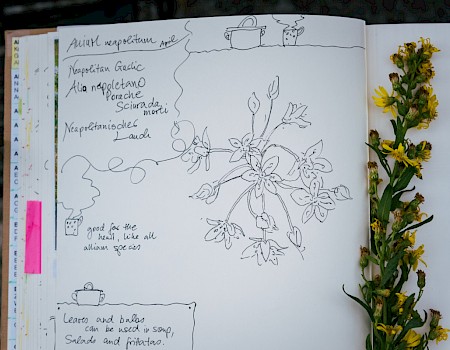 Allium neapolitum April
Neapolitan Garlic
Alio napoletano
Porache
Sciurada
morti
Neapolitanischer
Lauch
good for the
heart, like all
allium species
Leaves and bulbs
can be used in soup,
Salads and frittatas.